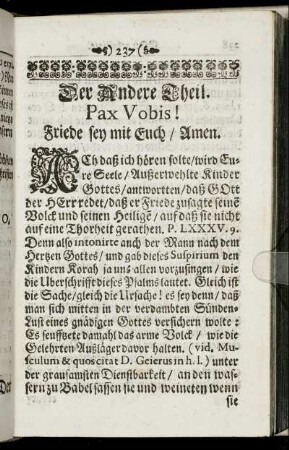 237
Der Andere Theil.
Pax Vobis!
Friede sey mit Euch / Amen.
ACh daß ich hören solte / wird Eu-
re Seele / Außerwehlte Kinder
Gottes / antwortten / daß GOtt
der HErr redet / daß er Friede zusagte seinē
Volck und seinen Heiligē / auf daß sie nicht
auf eine Thorheit gerathen. P. LXXXV. 9.
Denn also intonirte auch der Mann nach dem
Hertzen Gottes / und gab dieses Suspirium den
Kindern Korah ja uns allen vorzusingen / wie
die Uberschrifft dieses Psalms lautet. Gleich ist
die Sache / gleich die Ursache! es sey denn / daß
man sich mitten in der verdambten Sünden-
Lust eines gnädigen Gottes versichern wolte:
Es seufftzete damahl das arme Volck / wie die
Gelehrten Außläger davor halten. (vid. Mu-
sculum & quos citat D. Geierus in h. l.) unter
der grausamsten Dienstbarkeit / an den was-
sern zu Babel sassen sie und weineten wenn
sie